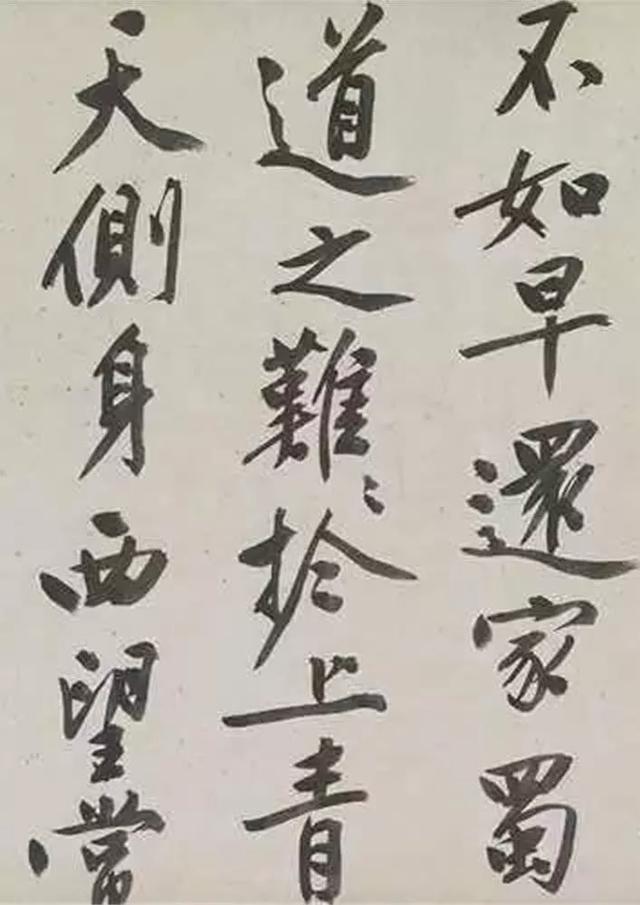 不如早還家蜀
道之難〻於上青
天側身西望常